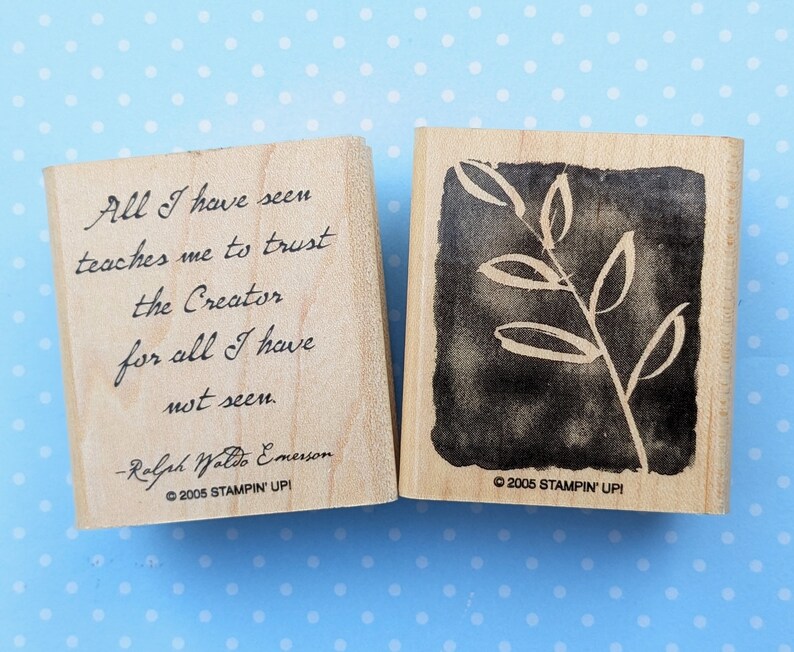 All I have seen
teaches me to trust
the Creator
for all I have
not seen.
-Ralph Waldo Emerson
© 2005 STAMPIN' UP!
© 2005 STAMPIN' UP!